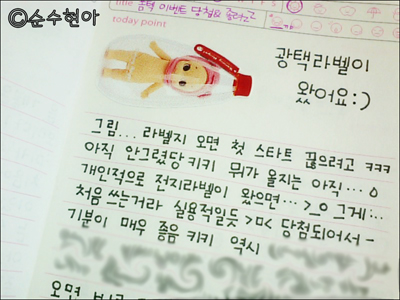 ©순수현아
title 공책 이벤트 당첨&
today point
광택라벨이
왔어요:)
그림... 라벨지 오면 첫 스타트 끊으려고 ㅋㅋㅋ
아직 안그렸당 키키 뭐가 올지는 아직...
개인적으로 전지라벨이 왔으면... >_0 그게...
처음 쓰는거라 실용적일듯 >ㅁ< 당첨되어서-
기분이 매우 좋음 키키 역시